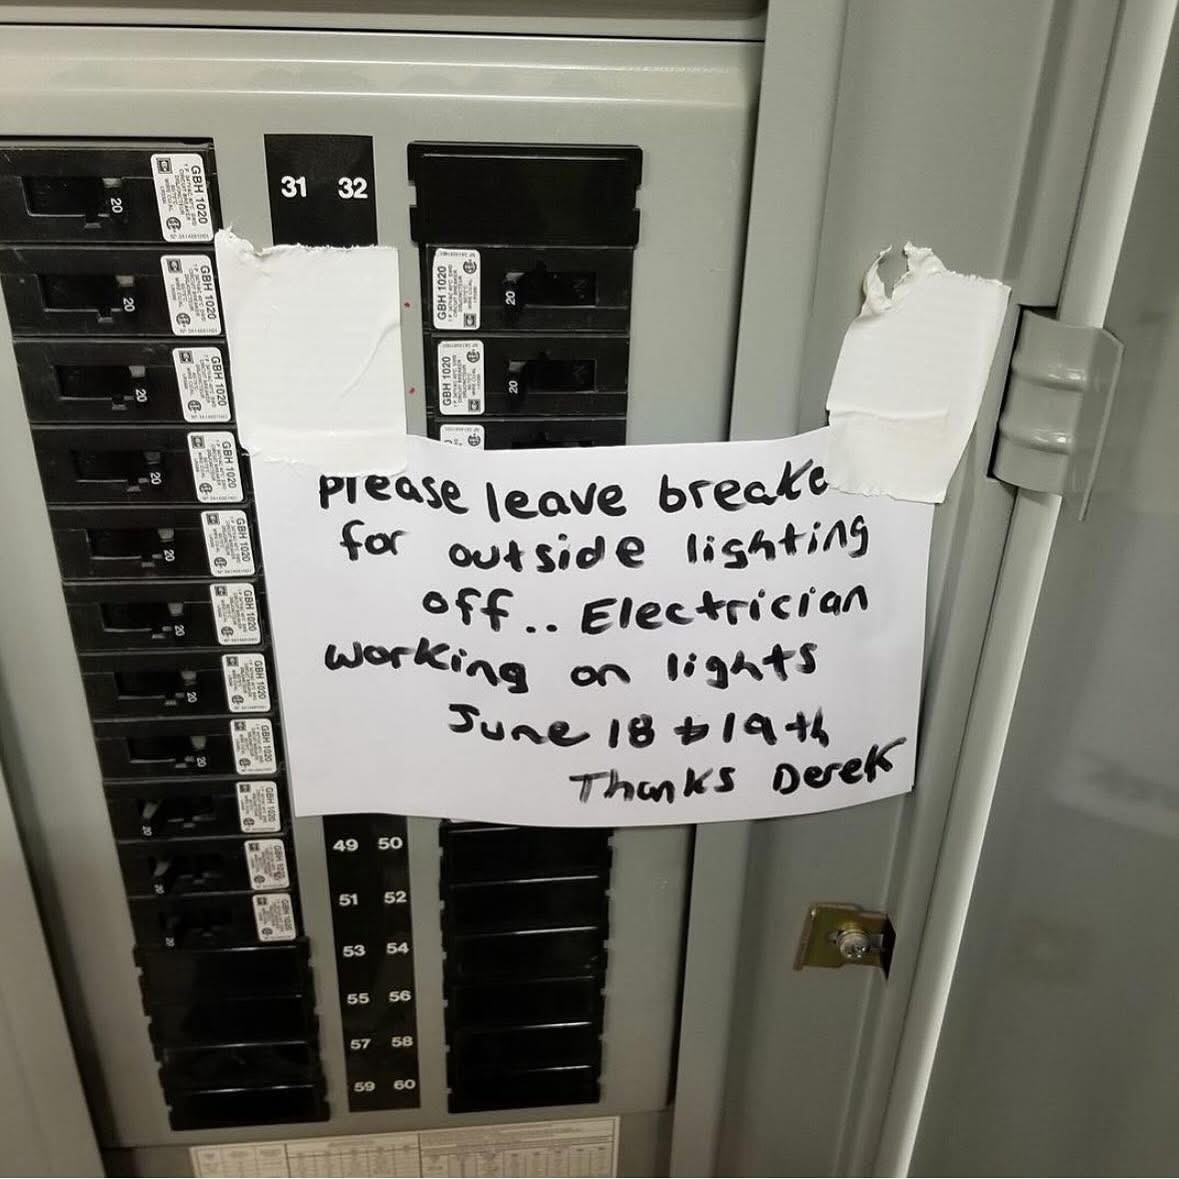 31 32
GBH 1020
20
GBH 1020
20
GBH 1020
20
GBH 1020
20
GBH 1020
20
GBH 1020
20
GBH 1020
20
GBH 1020
20
GBH 1020
20
GBH 1020
20
GBH 1020
20
GBH 1020
20
GBH 1020
20
Please leave breake
for outside lighting
off.. Electrician
working on lights
June 18 to 19th
Thanks Derek
49 50
51 52
53 54
55 56
57 58
59 60